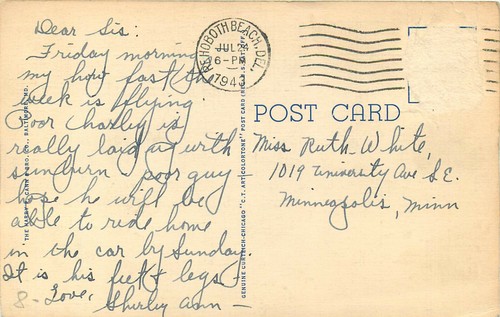 Dear Sis:
Friday morning
my how fast the
week is flying
Poor Charley is
really laid up with
sunburn - poor guy -
hope he will be
able to ride home
in the car by Sunday.
It is his feet & legs -
8- Love,
Shirley Ann -
REHOBOTH BEACH, DEL.
JUL 24
6-PM
194
POST CARD
Miss Ruth White,
1019 University Ave S.E.
Minneapolis, Minn
GENUINE CURTEICH-CHICAGO "C.T. ART COLORTONE" POST CARD